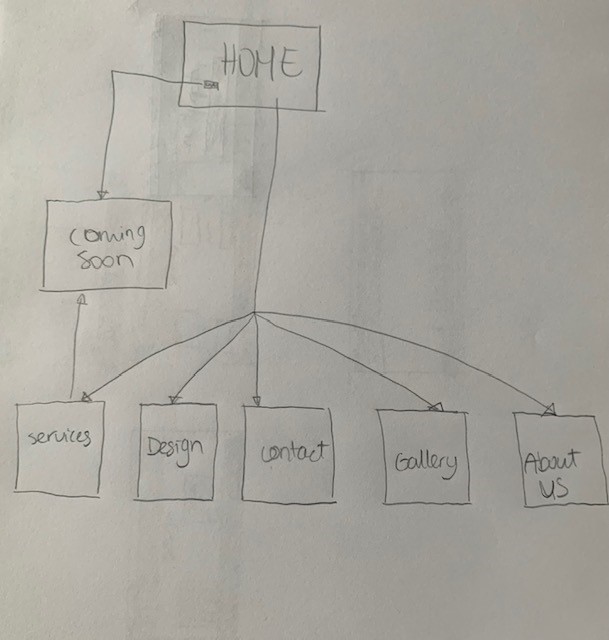 HOME
coming
soon
services
Design
contact
Gallery
About
US